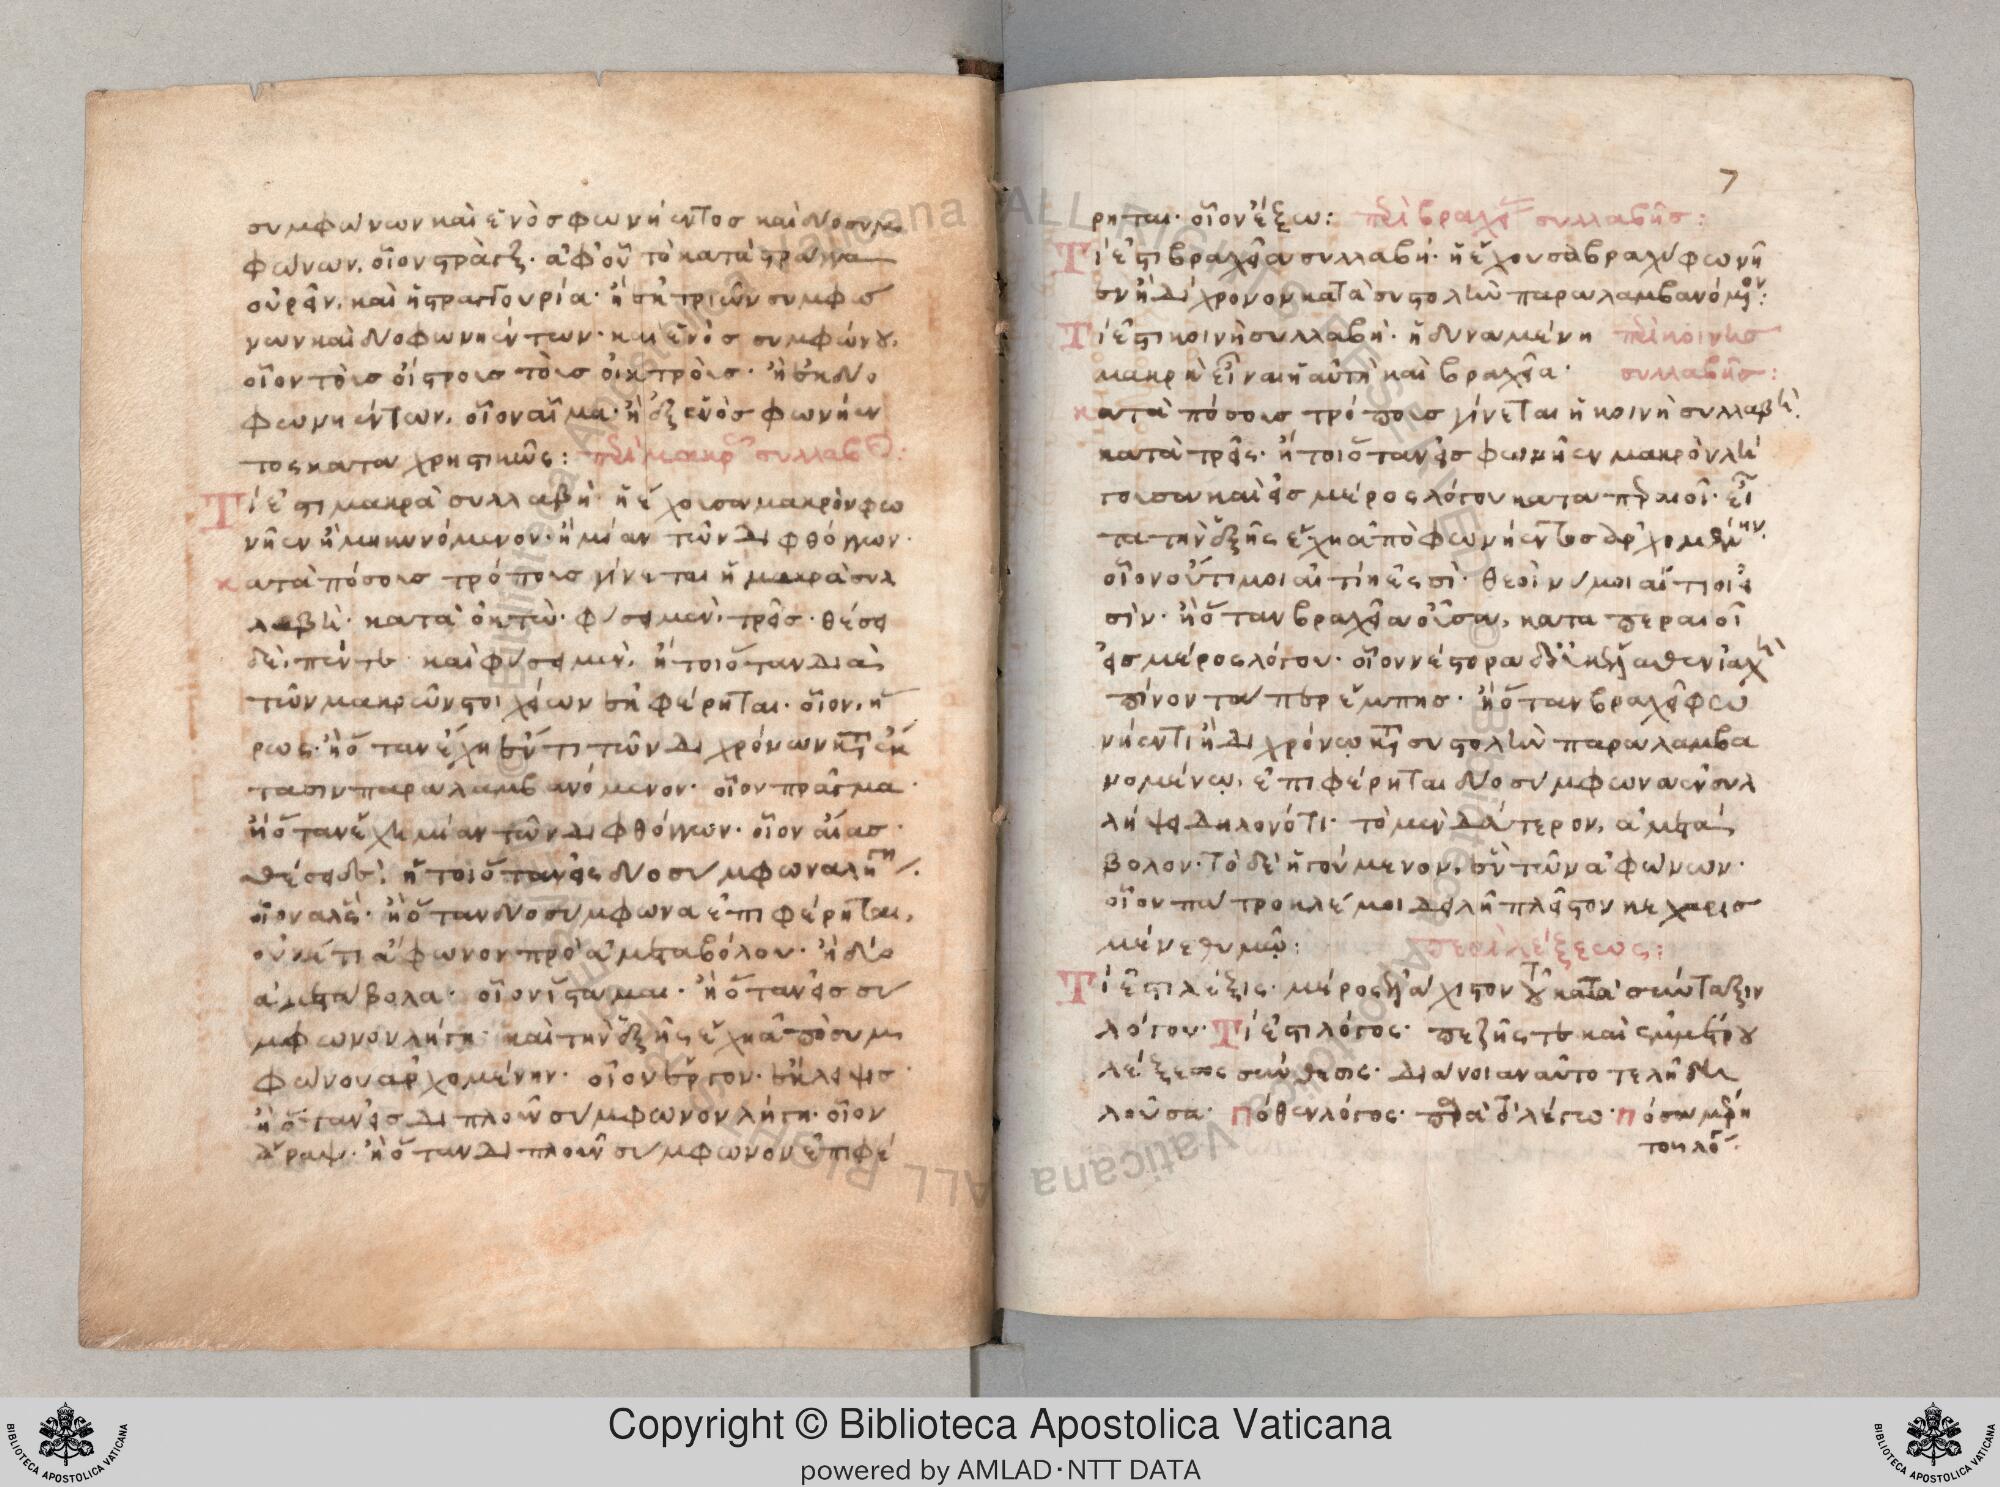 συμφώνων καὶ ἑνὸς φωνήεντος καὶ δύο συμ
φώνων, οἷον στράγξ· ἀφ' οὗ τὸ κατὰ στράγγα
οὐρεῖν, καὶ ἡ στραγγουρία· ἢ ἐκ τριῶν συμφώ
νων καὶ δύο φωνηέντων· καὶ ἑνὸς συμφώνου,
οἷον τοῖς οἴστροις τοῖς οἰκτροῖς· ἢ ἐκ δύο
φωνηέντων, οἷον αἷμα· ἢ ἐξ ἑνὸς φωνήεν
τος καταχρηστικῶς: περὶ μακρᾶς συλλαβῆς:
Τί ἐστι μακρὰ συλλαβή· ἡ ἔχουσα μακρὸν φω
νῆεν ἢ μηκυνόμενον· ἢ μίαν τῶν διφθόγγων·
κατὰ πόσους τρόπους γίνεται ἡ μακρὰ συλ
λαβή· κατὰ ὀκτώ· φύσει μὲν, τρεῖς· θέσει
δὲ, πέντε· καὶ φύσει μὲν, ἤτοι ὅταν διὰ
τῶν μακρῶν στοιχείων ἐκφέρηται· οἷον, ἥ
ρως· ἢ ὅταν ἔχη ἕν τι τῶν διχρόνων κατ' ἔκ
τασιν παραλαμβανόμενον· οἷον πρᾶγμα·
ἢ ὅταν ἔχη μίαν τῶν διφθόγγων· οἷον αἴας·
θέσει δὲ, ἤτοι ὅταν εἰς δύο σύμφωνα λήγη·
οἷον ἅλς· ἢ ὅταν δύο σύμφωνα ἐπιφέρηται,
οὐκέτι ἄφωνον πρὸ ἀμεταβόλου· ἢ δύο
ἀμετάβολα· οἷον ἵσταμαι· ἢ ὅταν εἰς σύ
μφωνον λήγη· καὶ τὴν ἑξῆς ἔχη ἀπὸ συμ
φώνου ἀρχομένην· οἷον ἔργον· ἔκλειψις·
ἢ ὅταν εἰς διπλοῦν σύμφωνον λήγη· οἷον
ἄραψ· ἢ ὅταν διπλοῦν σύμφωνον ἐπιφέ
7
ρηται· οἷον ἔξω: περὶ βραχείας συλλαβῆς:
Τί ἐστι βραχεῖα συλλαβή· ἡ ἔχουσα βραχὺ φωνῆ
εν ἢ δίχρονον κατὰ συστολὴν παραλαμβανόμενον:
Τί ἐστι κοινὴ συλλαβή· ἡ δυναμένη περὶ κοινῆς
μακρὴ εἶναι ἡ αὐτὴ καὶ βραχεῖα· συλλαβῆς:
κατὰ πόσους τρόπους γίνεται ἡ κοινὴ συλλαβή·
κατὰ τρεῖς· ἤτοι ὅταν εἰς φωνῆεν μακρὸν λή
γουσαν καὶ εἰς μέρος λόγου καταπεραιοῖ· εἶ
τα τὴν ἑξῆς ἔχη ἀπὸ φωνήεντος ἀρχομένην·
οἷον οὔτι μοι αἰτίη ἐσσί· θεοί νύ μοι αἴτιοι εἰ
σίν· ἢ ὅταν βραχεῖα οὖσα, καταπεραιοῖ
εἰς μέρος λόγου· οἷον νέστορα δ' οὐκ ἔλαθεν ἰαχὴ
πίνοντα περ ἔμπης· ἢ ὅταν βραχεῖ φω
νήεντι ἢ διχρόνω κατὰ συστολὴν παραλαμβα
νομένω, ἐπιφέρηται δύο σύμφωνα ἐν συλ
λήψει δηλονότι· τὸ μὲν δεύτερον, ἀμετά
βολον· τὸ δὲ ἡγούμενον, ἓν τῶν ἀφώνων·
οἷον πάτροκλέ μοι δειλῆ πλεῖστον κεχαρισ
μένε θυμῶ: περὶ λέξεως:
Τί ἐστι λέξις· μέρος ἐλάχιστον τοῦ κατὰ σύνταξιν
λόγου· Τί ἐστι λόγος· πεζῆς τε καὶ ἐμμέτρου
λέξεως σύνθεσις· διάνοιαν αὐτοτελῆ δη
λοῦσα· Πόθεν λόγος· παρὰ τὸ λέγω· Πόσα μέρη
τοῦ λόγου·
Copyright © Biblioteca Apostolica Vaticana
powered by AMLAD·NTT DATA